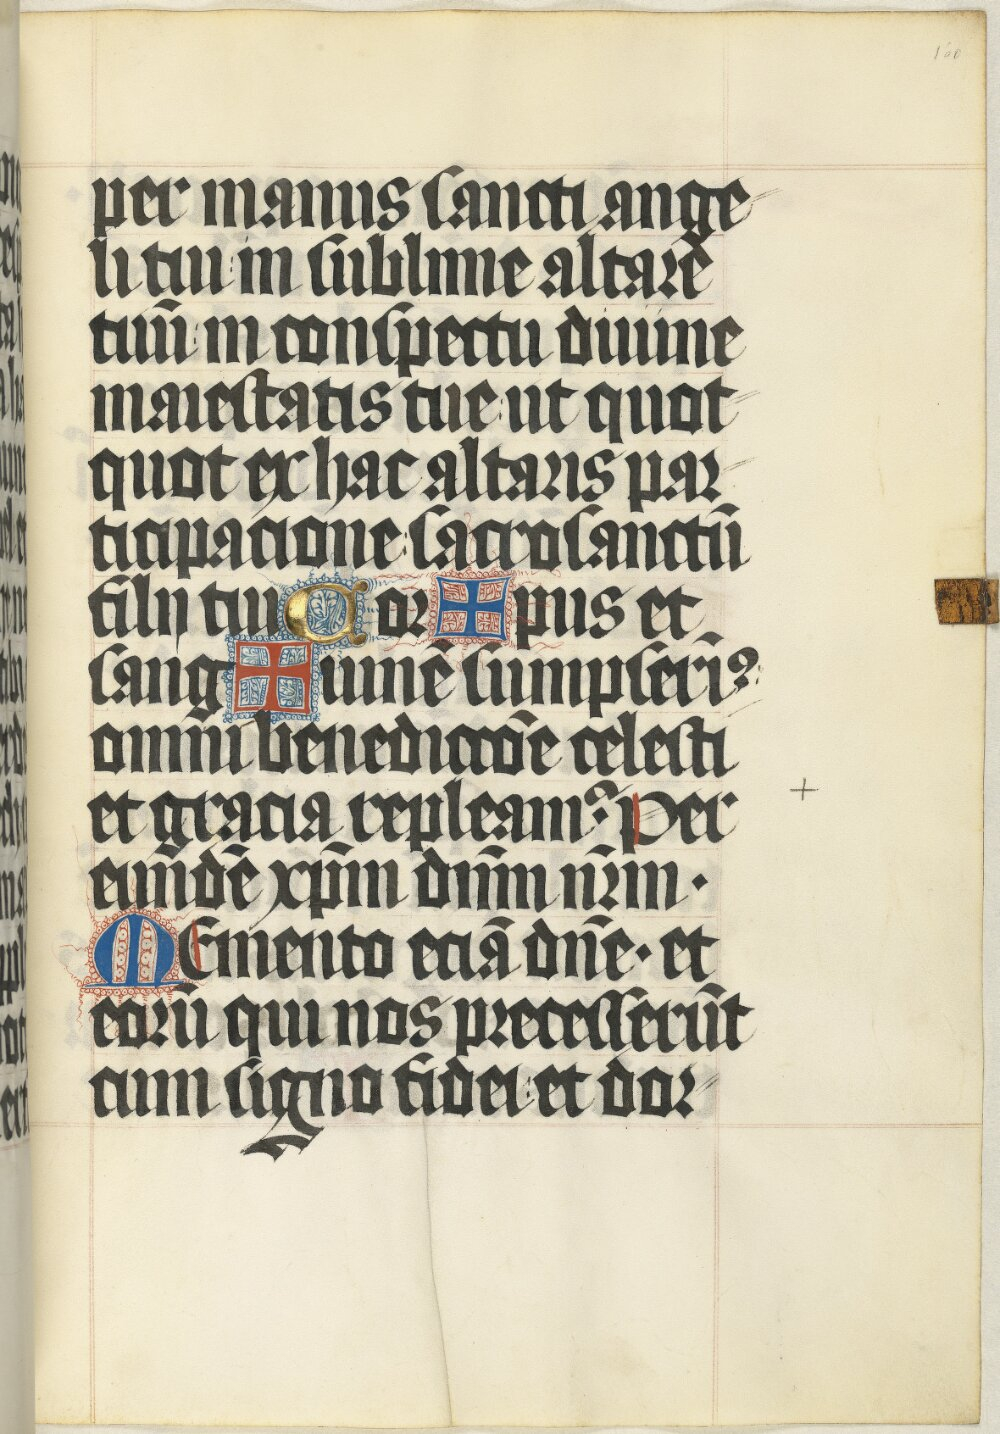 160
per manus sancti ange
li tui: in sublime altare
tuū: in conspectu diuine
maiestatis tue: ut quot
quot ex hac altaris par
ticipacione: sacrosanctū
filij tui Cor ✠ pus et
sang ✠ uinē sumpserim᷒:
omni benediccōe celesti
et gracia repleam᷒ Per
eundē xp̄m dn̄m nr̄m ·
Memento eciā dn̄e · et
eorū qui nos precesserūt
cum signo fidei: et dor